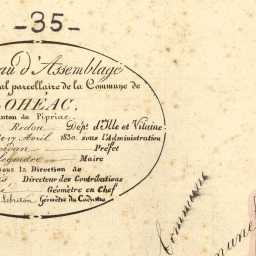 -35-
au d'Assemblage
al parcellaire de la Commune de
LOHÉAC,
anton de Pipriac
Redon Dépt. d'Ille et Vilaine
Avril 1830. sous l'Administration
Préfet
Maire
sous la Direction de
Directeur des Contributions
Géomètre en Chef
Géomètre du Cadastre
Commune